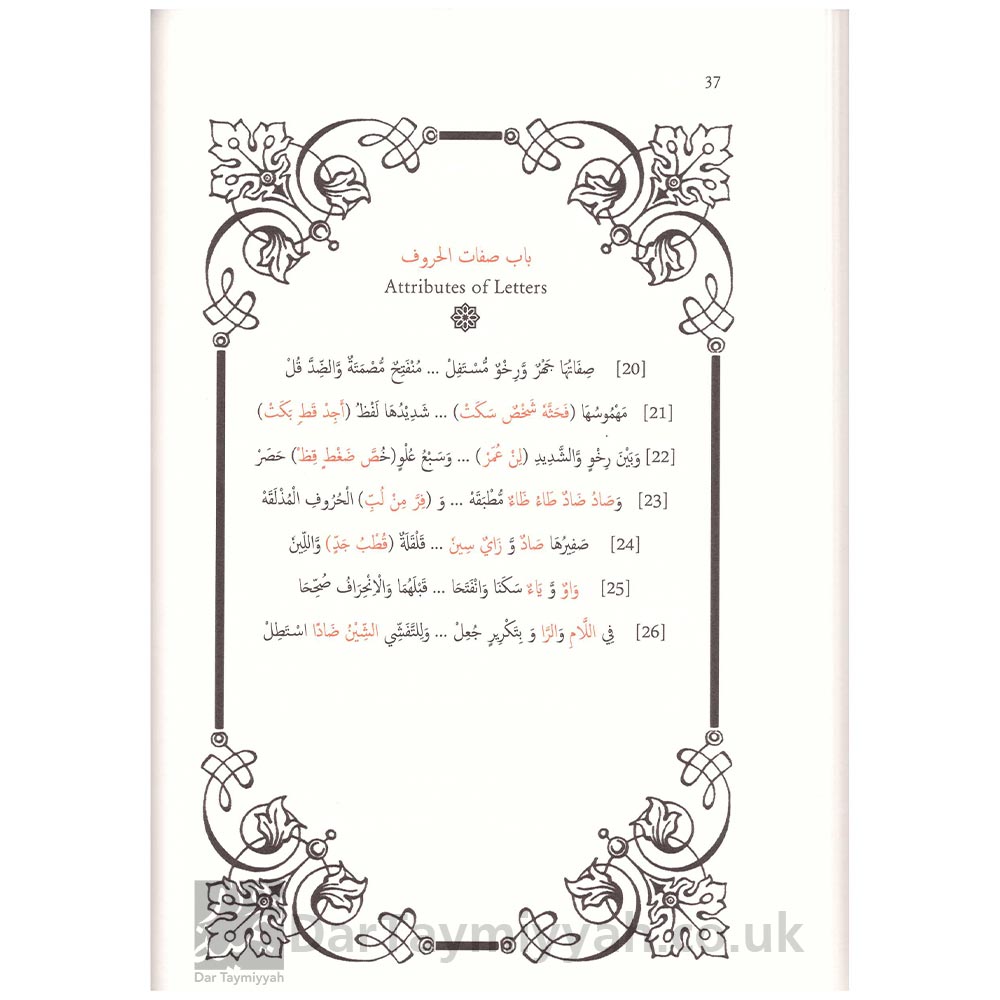 37
باب صفات الحروف
Attributes of Letters
[20] صِفَاتُهَا جَهْرٌ وَّرِخْوٌ مُّسْتَفِلْ ... مُنْفَتِحٌ مُّصْمَتَةٌ وَّالضِّدَّ قُلْ
[21] مَهْمُوسُهَا (فَحَثَّهُ شَخْصٌ سَكَتْ) ... شَدِيْدُهَا لَفْظُ (أَجِدْ قَطٍ بَكَتْ)
[22] وَبَيْنَ رِخْوٍ وَّالشَّدِيدِ (لِنْ عُمَرْ) ... وَسَبْعُ عُلْوٍ(خُصَّ ضَغْطٍ قِظْ) حَصَرْ
[23] وَصَادُ ضَادٌ طَاءٌ ظَاءٌ مُّطْبَقَهْ ... وَ (فِرَّ مِنْ لُبِّ) الْحُرُوفِ الْمُذْلَقَهْ
[24] صَفِيرُهَا صَادٌ وَّ زَايٌ سِينَ ... قَلْقَلَةٌ (قُطْبُ جَدٍّ) وَّاللِّينَ
[25] وَاوٌ وَّ يَاءٌ سَكَنَا وَانْفَتَحَا ... قَبْلَهُمَا وَالْاِنْحِرَافُ صُحِّحَا
[26] فِي اللَّامِ وَالرَّا وَ بِتَكْرِيرٍ جُعِلْ ... وَلِلتَّفَشِّي الشِّيْنُ ضَادًا اسْتَطِلْ
DarTaymiyyah.co.uk
Dar Taymiyyah